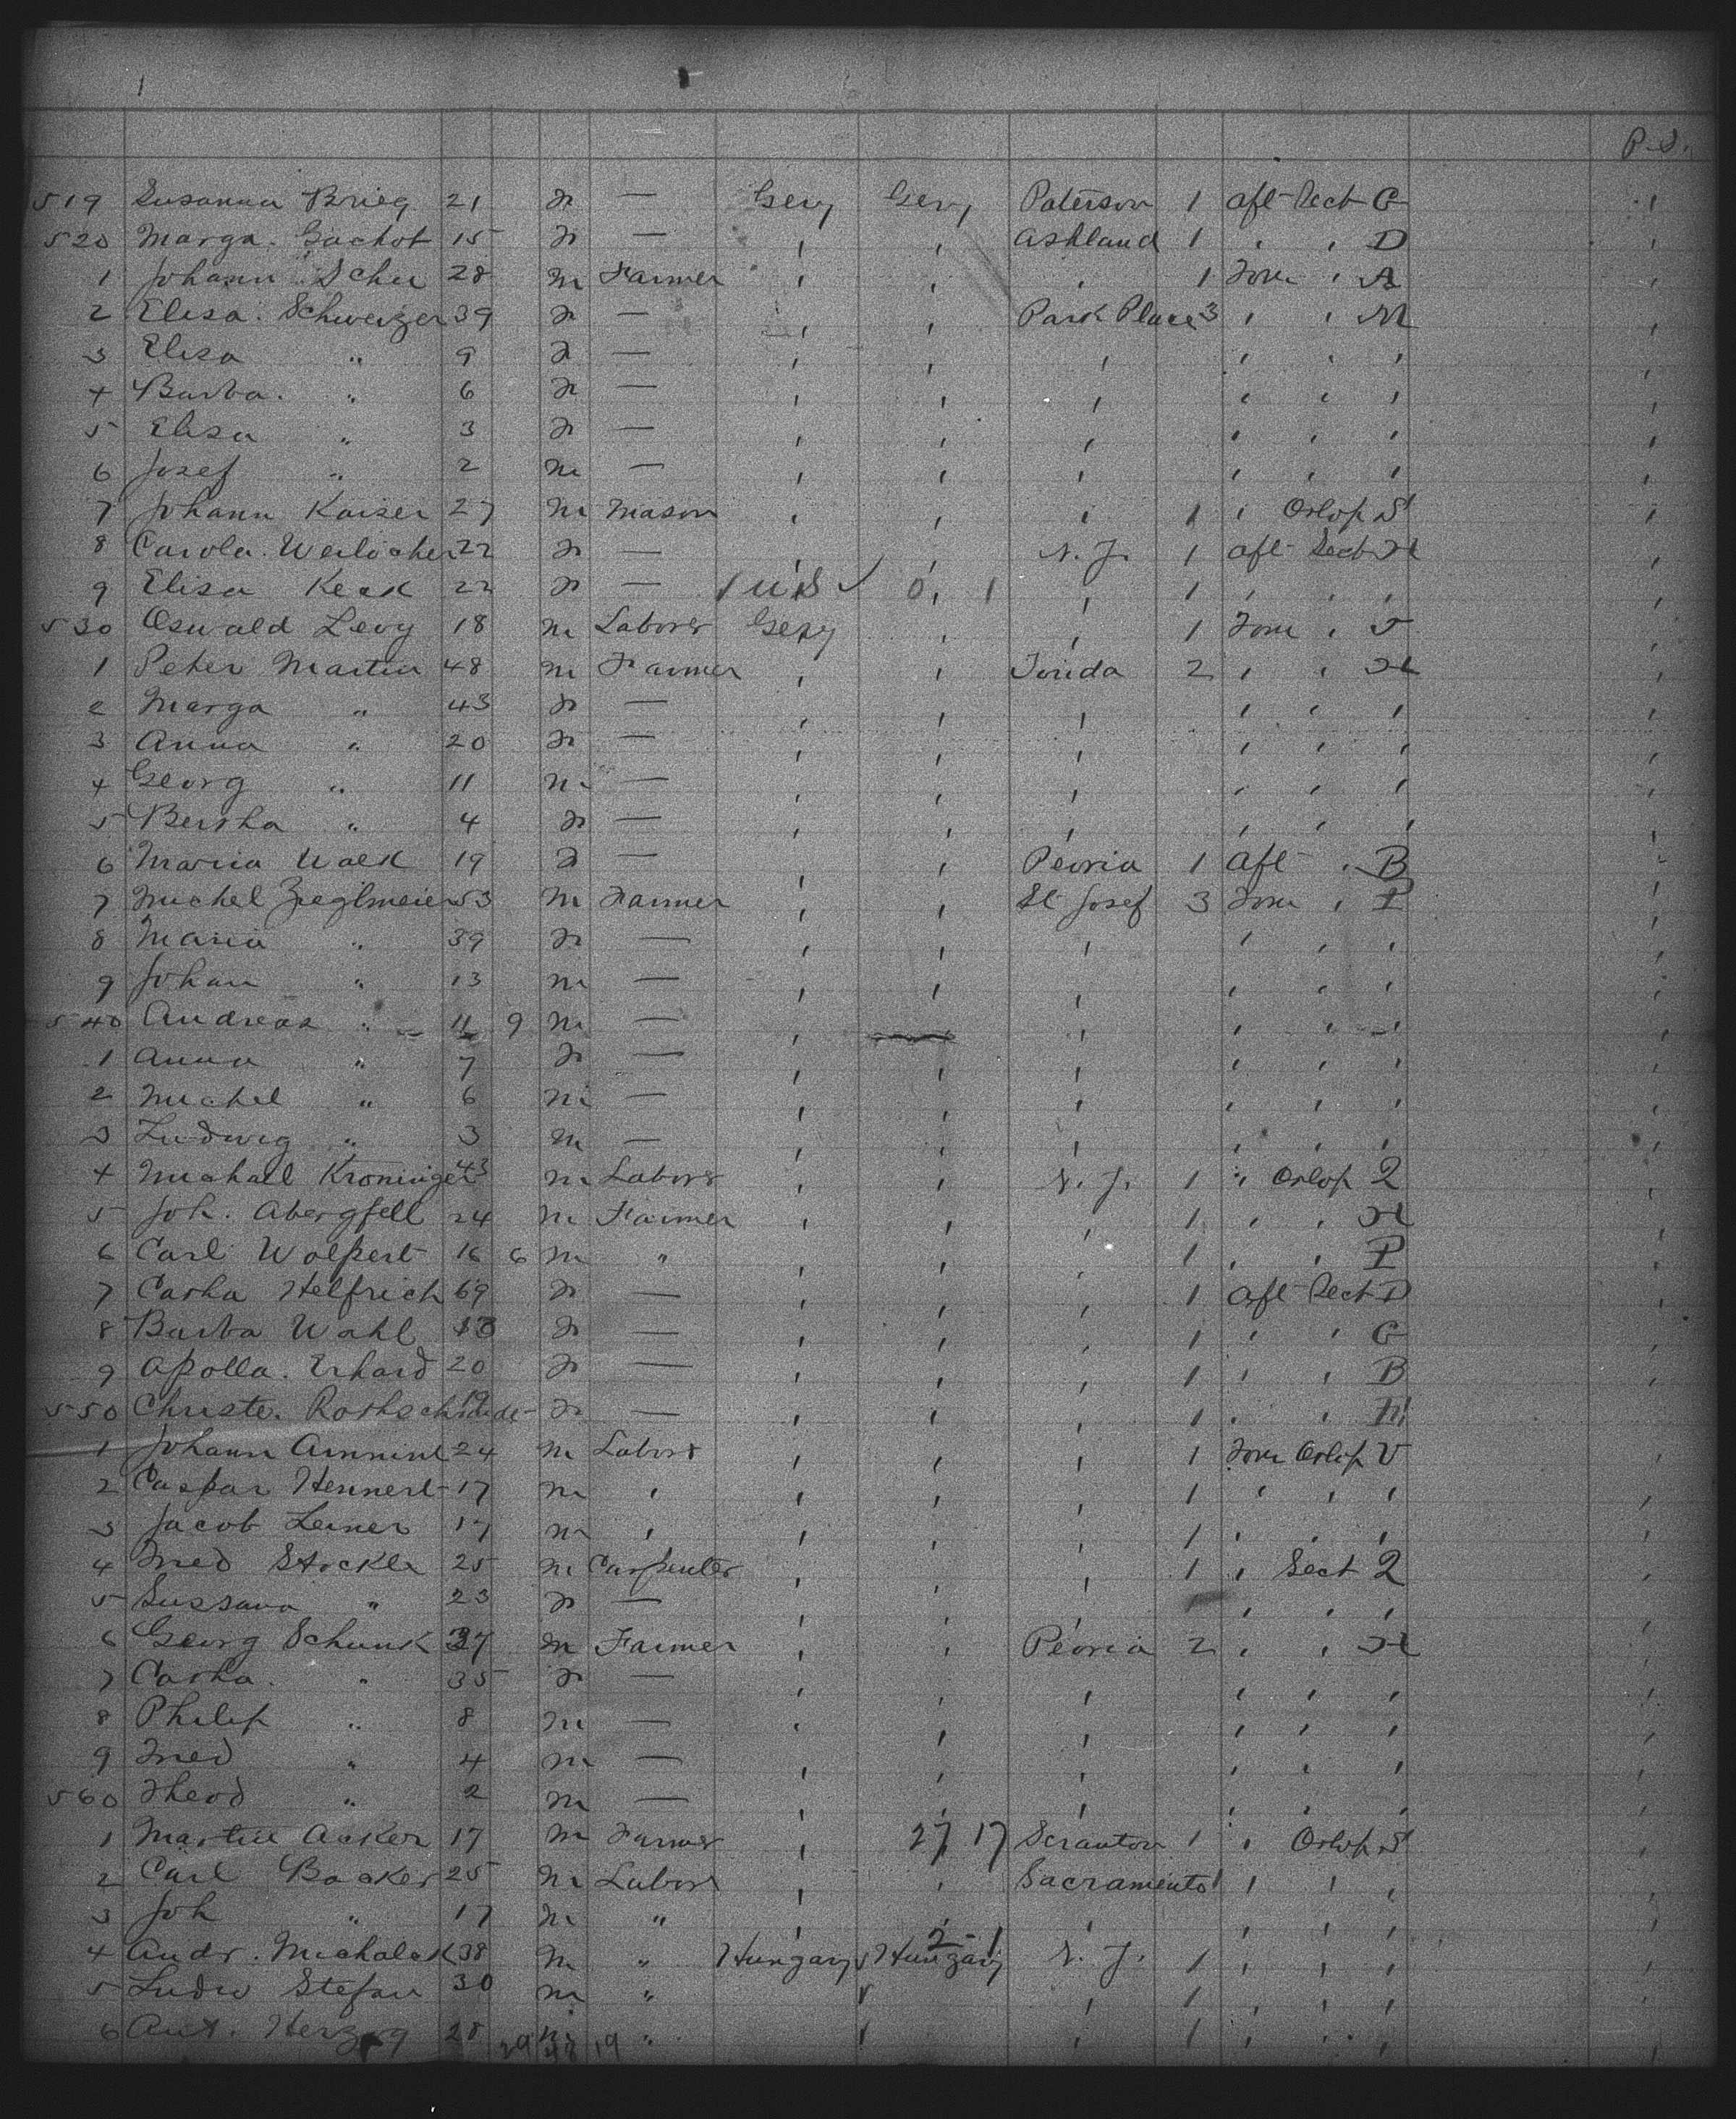 P.S.
519 Susanna Brieg 21 F — Gery Gery Paterson 1 aft Sect G
520 Marga. Gachot 15 F — " " Ashland 1 " " D
1 Johann Schu 28 m Farmer " " " 1 Forw " A
2 Elisa. Schweizer 39 F — " " Park Place 3 " " M
3 Elisa " 9 F — " " " " " "
4 Barba. " 6 F — " " " " " "
5 Elisa " 3 F — " " " " " "
6 Josef " 2 m — " " " " " "
7 Johann Kaiser 27 m Mason " " " 1 " Orlop S
8 Carola. 22 F — " " N.J. 1 aft Sect H
9 Elisa Keck 22 F — U.S 0, 1 " 1 " " "
530 Oswald Levy 18 m Laborer Gery " " 1 Forw "
1 Peter Martin 48 m Farmer " " 2 " " H
2 Marga " 43 F — " " " " " "
3 Anna " 20 F — " " " " " "
4 Georg " 11 m — " " " " " "
5 Bertha " 4 F — " " " " " "
6 Maria Walk 19 F — " " Peoria 1 aft " B
7 Michel Zieglmeier 53 m Farmer " " St Josef 3 Forw " P
8 Maria " 39 F — " " " " " "
9 Johan " 13 m — " " " " " "
540 Andreas " 11 9 m — " " " " "
1 Anna " 7 F — " " " " " "
2 Michel " 6 m — " " " " " "
3 Ludwig " 3 m — " " " " " "
4 Michael Kroninger 43 m Labors " " N.J. 1 " Orlop 2
5 Joh. Abergfell 24 m Farmer " " " 1 " " H
6 Carl Wolpert 16 6 m " " " " 1 " " P
7 Catha Helfrich 69 F — " " " 1 aft Sect D
8 Barba Wahl F — " " " 1 " " G
9 Apolla. Erhard 20 F — " " " 1 " " B
550 Christe. 19 F — " " " 1 " " M
1 Johann 24 m Labors " " " 1 Forw Orlop V
2 Caspar Hennert 17 m " " " " 1 " " "
3 Jacob Leiner 17 m " " " " 1 " " "
4 Fried Stockle 25 m Carpenter " " " 1 " Sect 2
5 Sussana " 23 F — " " " " " "
6 Georg Schunk 37 m Farmer " " Peoria 2 " " H
7 Catha. " 35 F — " " " " " "
8 Philip " 8 m — " " " " " "
9 Fried " 4 m — " " " " " "
560 Theod " 2 m — " " " " " "
1 Martin Acker 17 m Farmer " 27 17 Scranton 1 " Orlop S
2 Carl Backer 25 m Labors " " Sacramento 1 " " "
3 Joh " 17 m " " " " " " "
2 1
4 Andr. Michalak 38 m " Hungary Hungary N.J. 1 " " "
5 Ludw Stefan 30 m " " " 1 " " "
6 Ant. Herzog 28 m " " " 1 " " "
29 48 19